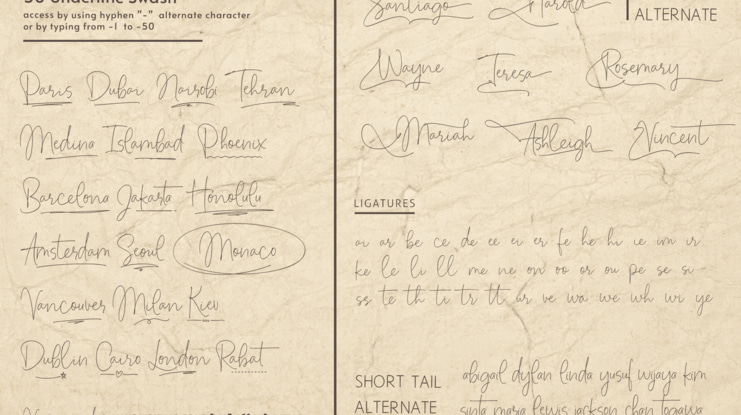 50 Underline Swash
access by using hyphen "-" alternate character
or by typing from -1 to -50
Paris Dubai Nairobi Tehran
Medina Islambad Phoenix
Barcelona Jakarta Honolulu
Amsterdam Seoul Monaco
Vancouver Milan Kiev
Dublin Cairo London Rabat
Santiago Harold
ALTERNATE
Wayne Teresa Rosemary
Mariah Ashleigh Vincent
LIGATURES
ai ar be ce de ee ei er fe he hi ie im ir
ke le li ll me ne on oo or ou pe se si
ss te th ti tr tt ur ve wa we wh wi ye
SHORT TAIL
ALTERNATE
abigail dylan linda yusuf wijaya kim
sinta maria lewis jackson chan togawa